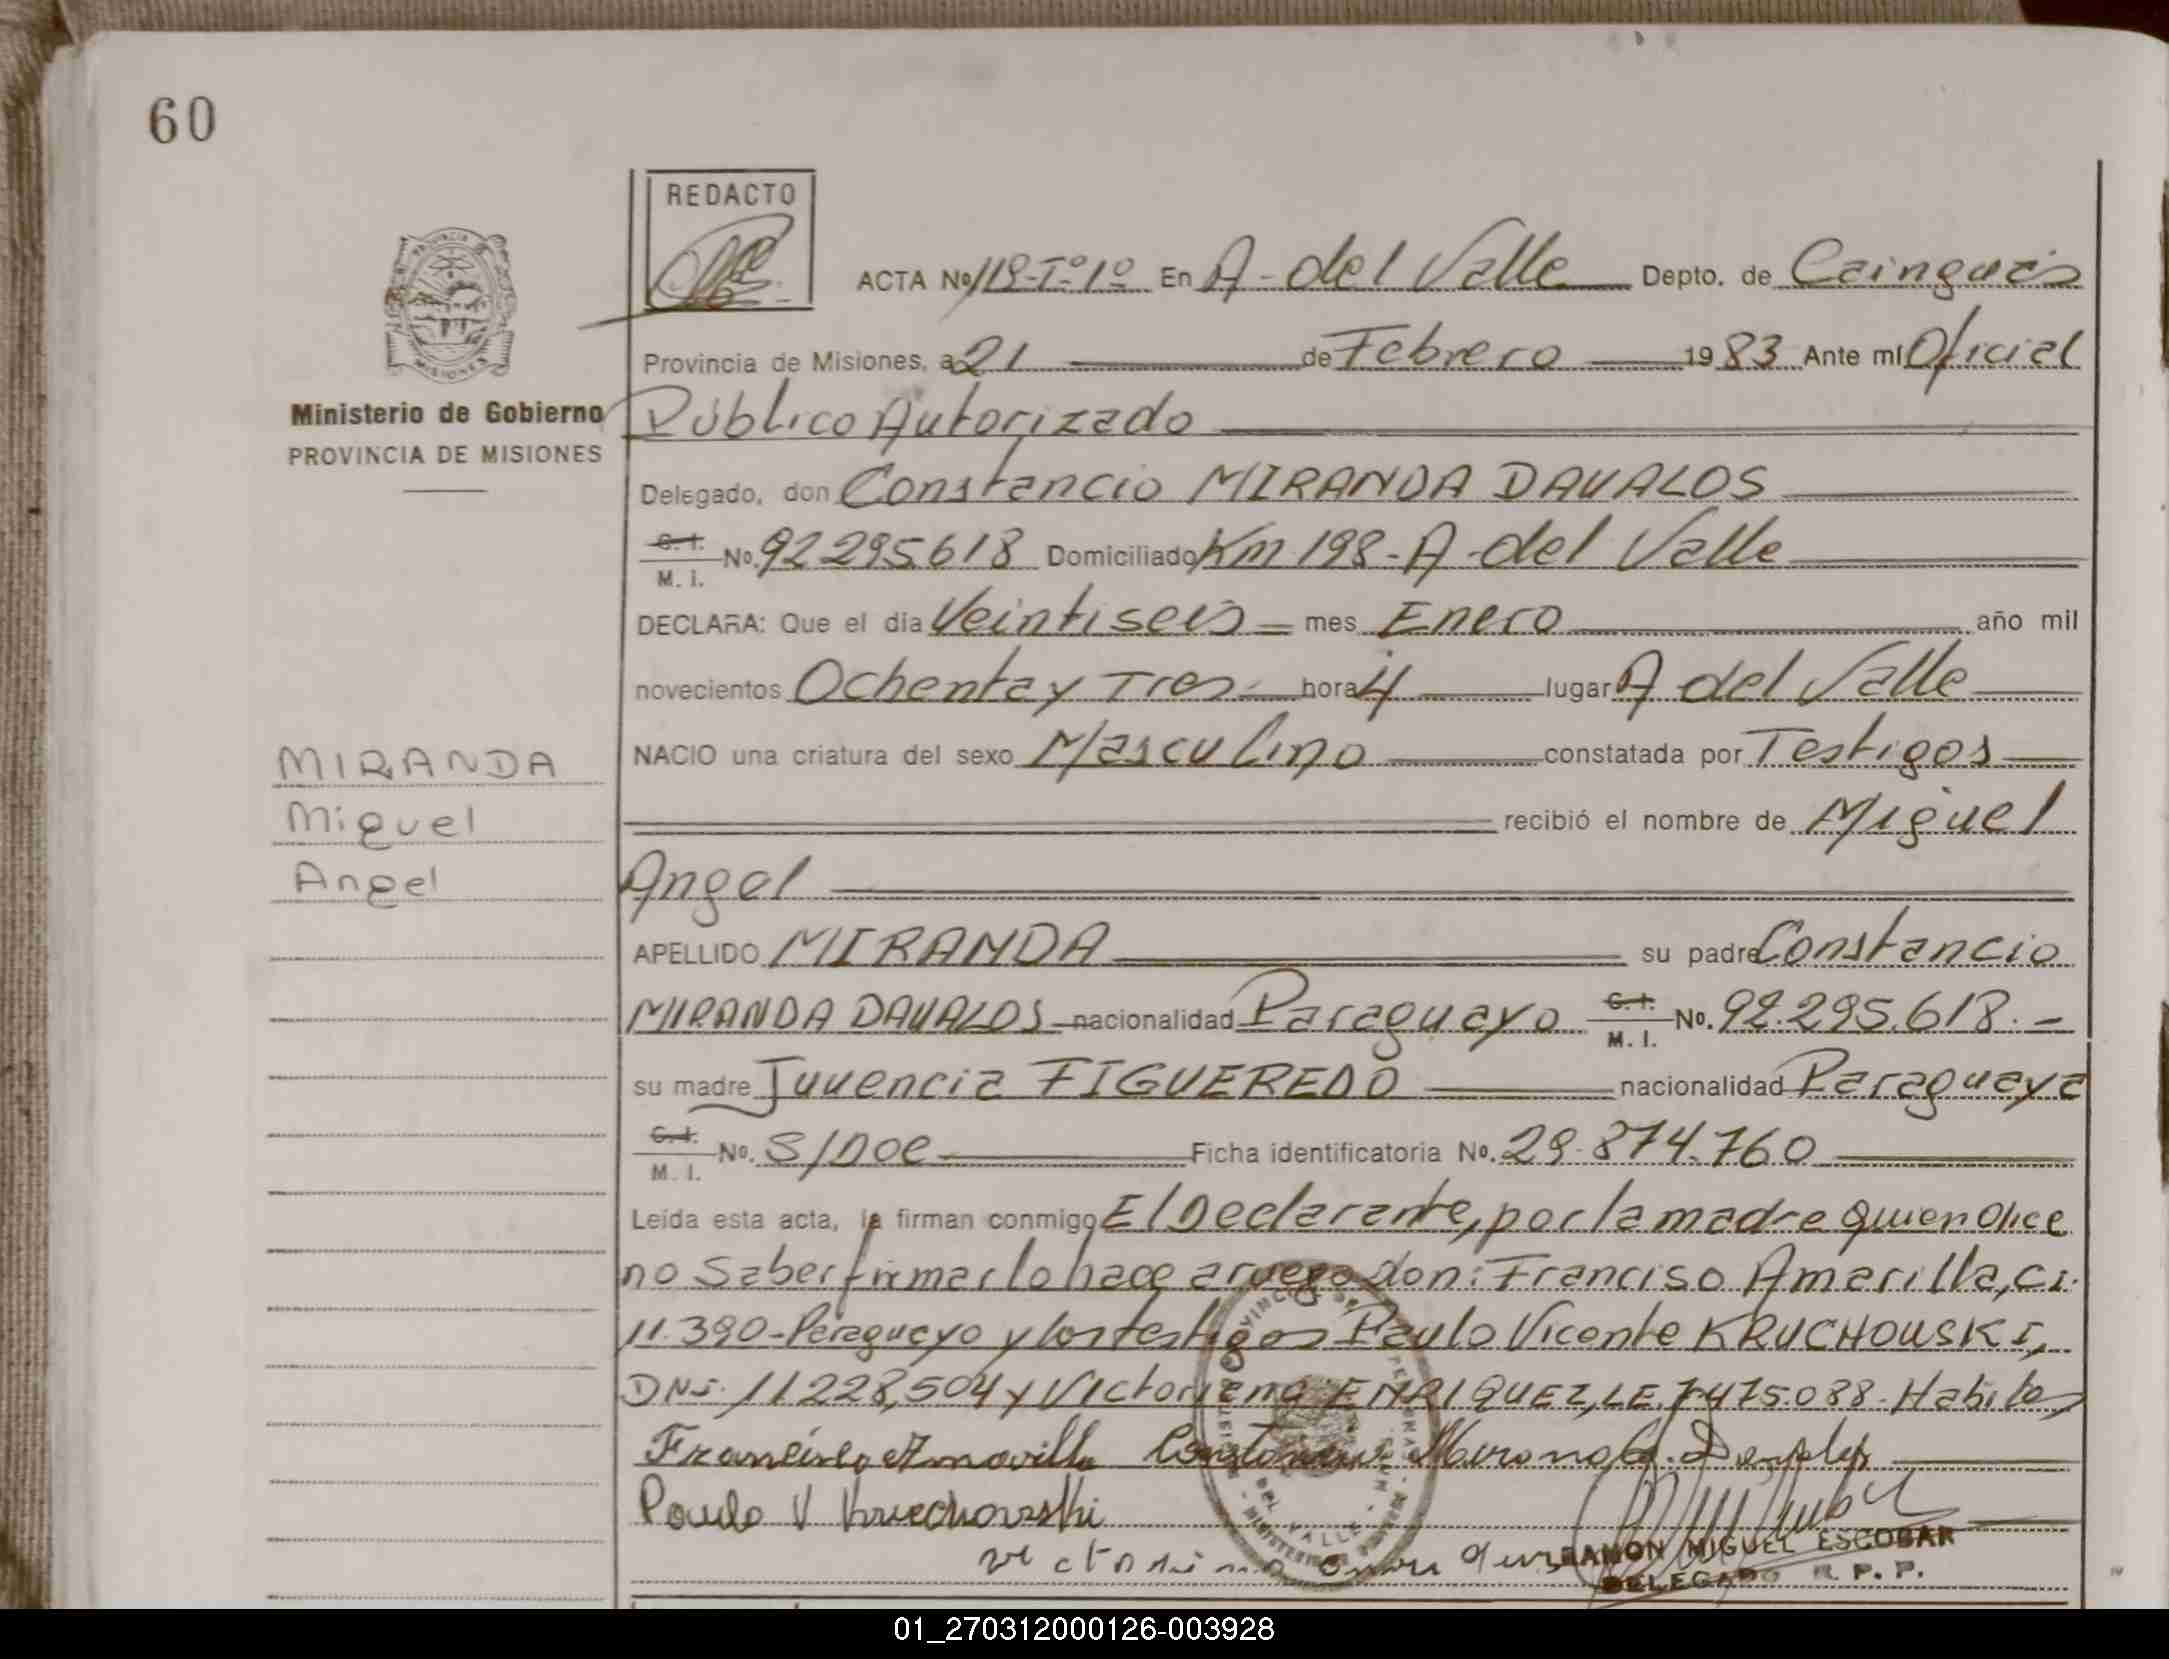 60
REDACTO
ACTA Nº 119-Tº1º En A-del Valle Depto. de Cainguás
Provincia de Misiones, a 21 de Febrero 1983 Ante mí Oficial
Ministerio de Gobierno
Público Autorizado
PROVINCIA DE MISIONES
Delegado, don Constancio MIRANDA DAVALOS
C. I. M. I. No. 92295618 Domiciliado Km 198-A-del Valle
DECLARA: Que el día Veintiseis mes Enero año mil
novecientos Ochenta y Tres hora 4 lugar A del Valle
MIRANDA
NACIO una criatura del sexo Masculino constatada por Testigos
Miguel
recibió el nombre de Miguel
Angel
Angel
APELLIDO MIRANDA su padre Constancio
MIRANDA DAVALOS nacionalidad Paraguayo C. I. M. I. No. 92.295.618.-
su madre Juvencia FIGUEREDO nacionalidad Paraguaya
C. I. M. I. No. S/Doc Ficha identificatoria No. 29.874.760
Leída esta acta, la firman conmigo El Declarante, por la madre quien dice
no Saber firmar lo hace a ruego don: Franciso Amarilla, C.I.
11.390-Paraguayo y los testigos Paulo Vicente KRUCHOUSKI,
DNI. 11.228,504 y Victoriana ENRIQUEZ, LE. 7.475.088. Habiles
Francisco Amarilla Constancio Miranda D.
Paulo V Kruchowski
RAMON MIGUEL ESCOBAR
DELEGADO R. P. P.
01_270312000126-003928